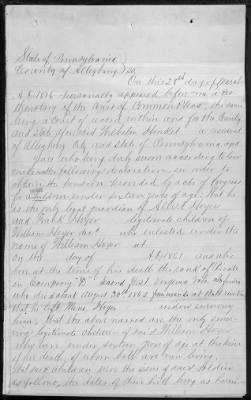 State of Pennsylvania
County of Allegheny } SS
On this 28th day of March
A.D. 1876 personally appeared before me a Pro
thonotary of the Court of Common Pleas, the same
being a Court of record within and for the County
and State aforesaid Wilhelm Hendel a resident
of Allegheny City and State of Pennsylvania aged
years who being duly sworn according to law
makes the following declaration in order to
obtain the pension provided by acts of Congress
for children under sixteen years of age. That he
is the only legal guardian of Albert Hoyer
and Frank Hoyer legitimate children of
William Hoyer decd who enlisted under the
name of William Hoyer at
on the day of A.D. 1861 and who
bore at the time of his death the rank of Private
in Company "D"
who died August 30th 1862
That he left Mrs Hoyer widow surviving
him, that the above named are the only surviving
legitimate children of said William Hoyer
who were under sixteen years of age at the time
of his death, of whom both are now living
of said soldier
as follows, the dates of their birth being as herein